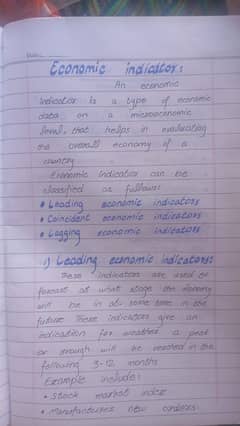 Economic indicators:
An economic
indicator is a type of economic
data on a microeconomic
level, that helps in evaluating
the overall economy of a
country
Economic indicator can be
classified as follows:
Leading economic indicators
Coincident economic indicators
Lagging economic indicators
1) Leading economic indicators:
These indicators are used to
forecast at what stage the economy
will be in at some time in the
future These indicators give an
indication for weather a peak
or trough will be reached in the
following 3-12 months
Example include:
• Stock market index
• Manufacturers new orders